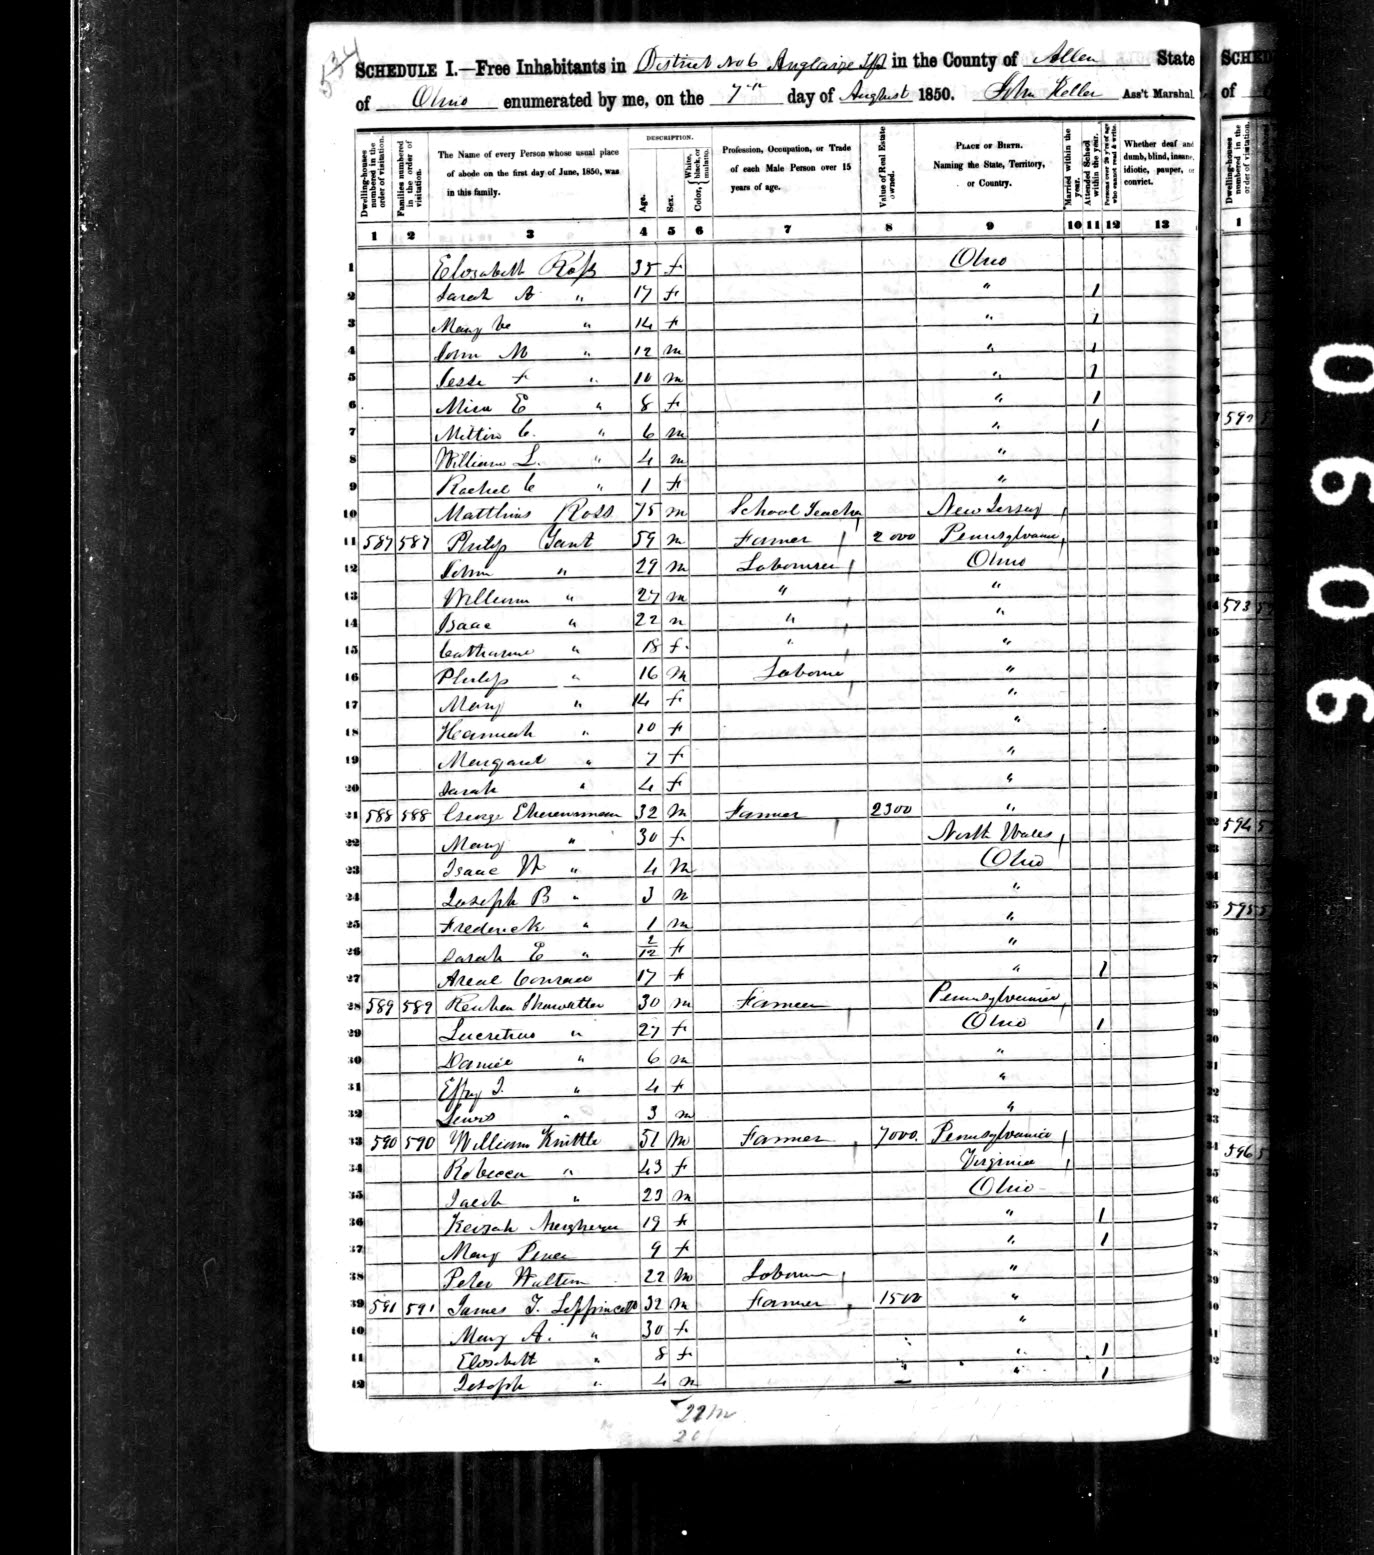 534
SCHEDULE I.—Free Inhabitants in District No 6 Auglaize Tp in the County of Allen State
of Ohio enumerated by me, on the 7th day of Aughust 1850. John Keller Ass't Marshal
Dwelling-houses numbered in the order of visitation. Families numbered in the order of visitation. The Name of every Person whose usual place of abode on the first day of June, 1850, was in this family. DESCRIPTION. Age. Sex. Color, White, black, or mulatto. Profession, Occupation, or Trade of each Male Person over 15 years of age. Value of Real Estate owned. PLACE OF BIRTH. Naming the State, Territory, or Country. Married within the year. Attended School within the year. Persons over 20 y'rs of age who cannot read & write. Whether deaf and dumb, blind, insane, idiotic, pauper, or convict.
1 2 3 4 5 6 7 8 9 10 11 12 13
1 Elosabeth Ross 35 f Ohio
2 Sarah A " 17 f " 1
3 Mary " 14 f " 1
4 John M " 12 m " 1
5 Jesse F " 10 m " 1
6 Mira E " 8 f " 1
7 C. " 6 m " 1
8 William L. " 4 m "
9 Rachel C " 1 f "
10 Matthias Ross 75 m School Teacher New Jersey
11 587 587 Philip Gant 59 m Farmer 2000 Pennsylvania
12 John " 29 m Labourer Ohio
13 William " 27 m " "
14 Isaac " 22 m " "
15 Catharine " 18 f " "
16 Philip " 16 m Labourer "
17 Mary " 14 f "
18 Hannah " 10 f "
19 Margaret " 7 f "
20 Sarah " 4 f "
21 588 588 George 32 m Farmer 2300 "
22 Mary " 30 f North Wales
23 Isaac W " 4 m Ohio
24 Joseph B " 3 m "
25 Frederick " 1 m "
26 Sarah E " 2/12 f "
27 Conrad 17 f " 1
28 589 589 Reuben Showalter 30 m Farmer Pennsylvania
29 Lucretius " 27 f Ohio 1
30 Daniel " 6 m "
31 Effy J. " 4 f "
32 Lewis " 3 m "
33 590 590 William Knittle 51 m Farmer 7000. Pennsylvania
34 Robecca " 43 f Virginia
35 Jacob " 23 m Ohio
36 Keizah 19 f " 1
37 Mary 9 f " 1
38 Peter Walton 22 m Labourer "
39 591 591 James T. Lippincott 32 m Farmer 1500 "
40 Mary A. " 30 f "
41 Elosabett " 8 f " 1
42 Joseph " 4 m " 1
22 m
20
SCHED
of
Dwelling-houses numbered in the order of visitation.
1
592
593
594
595
596
9090